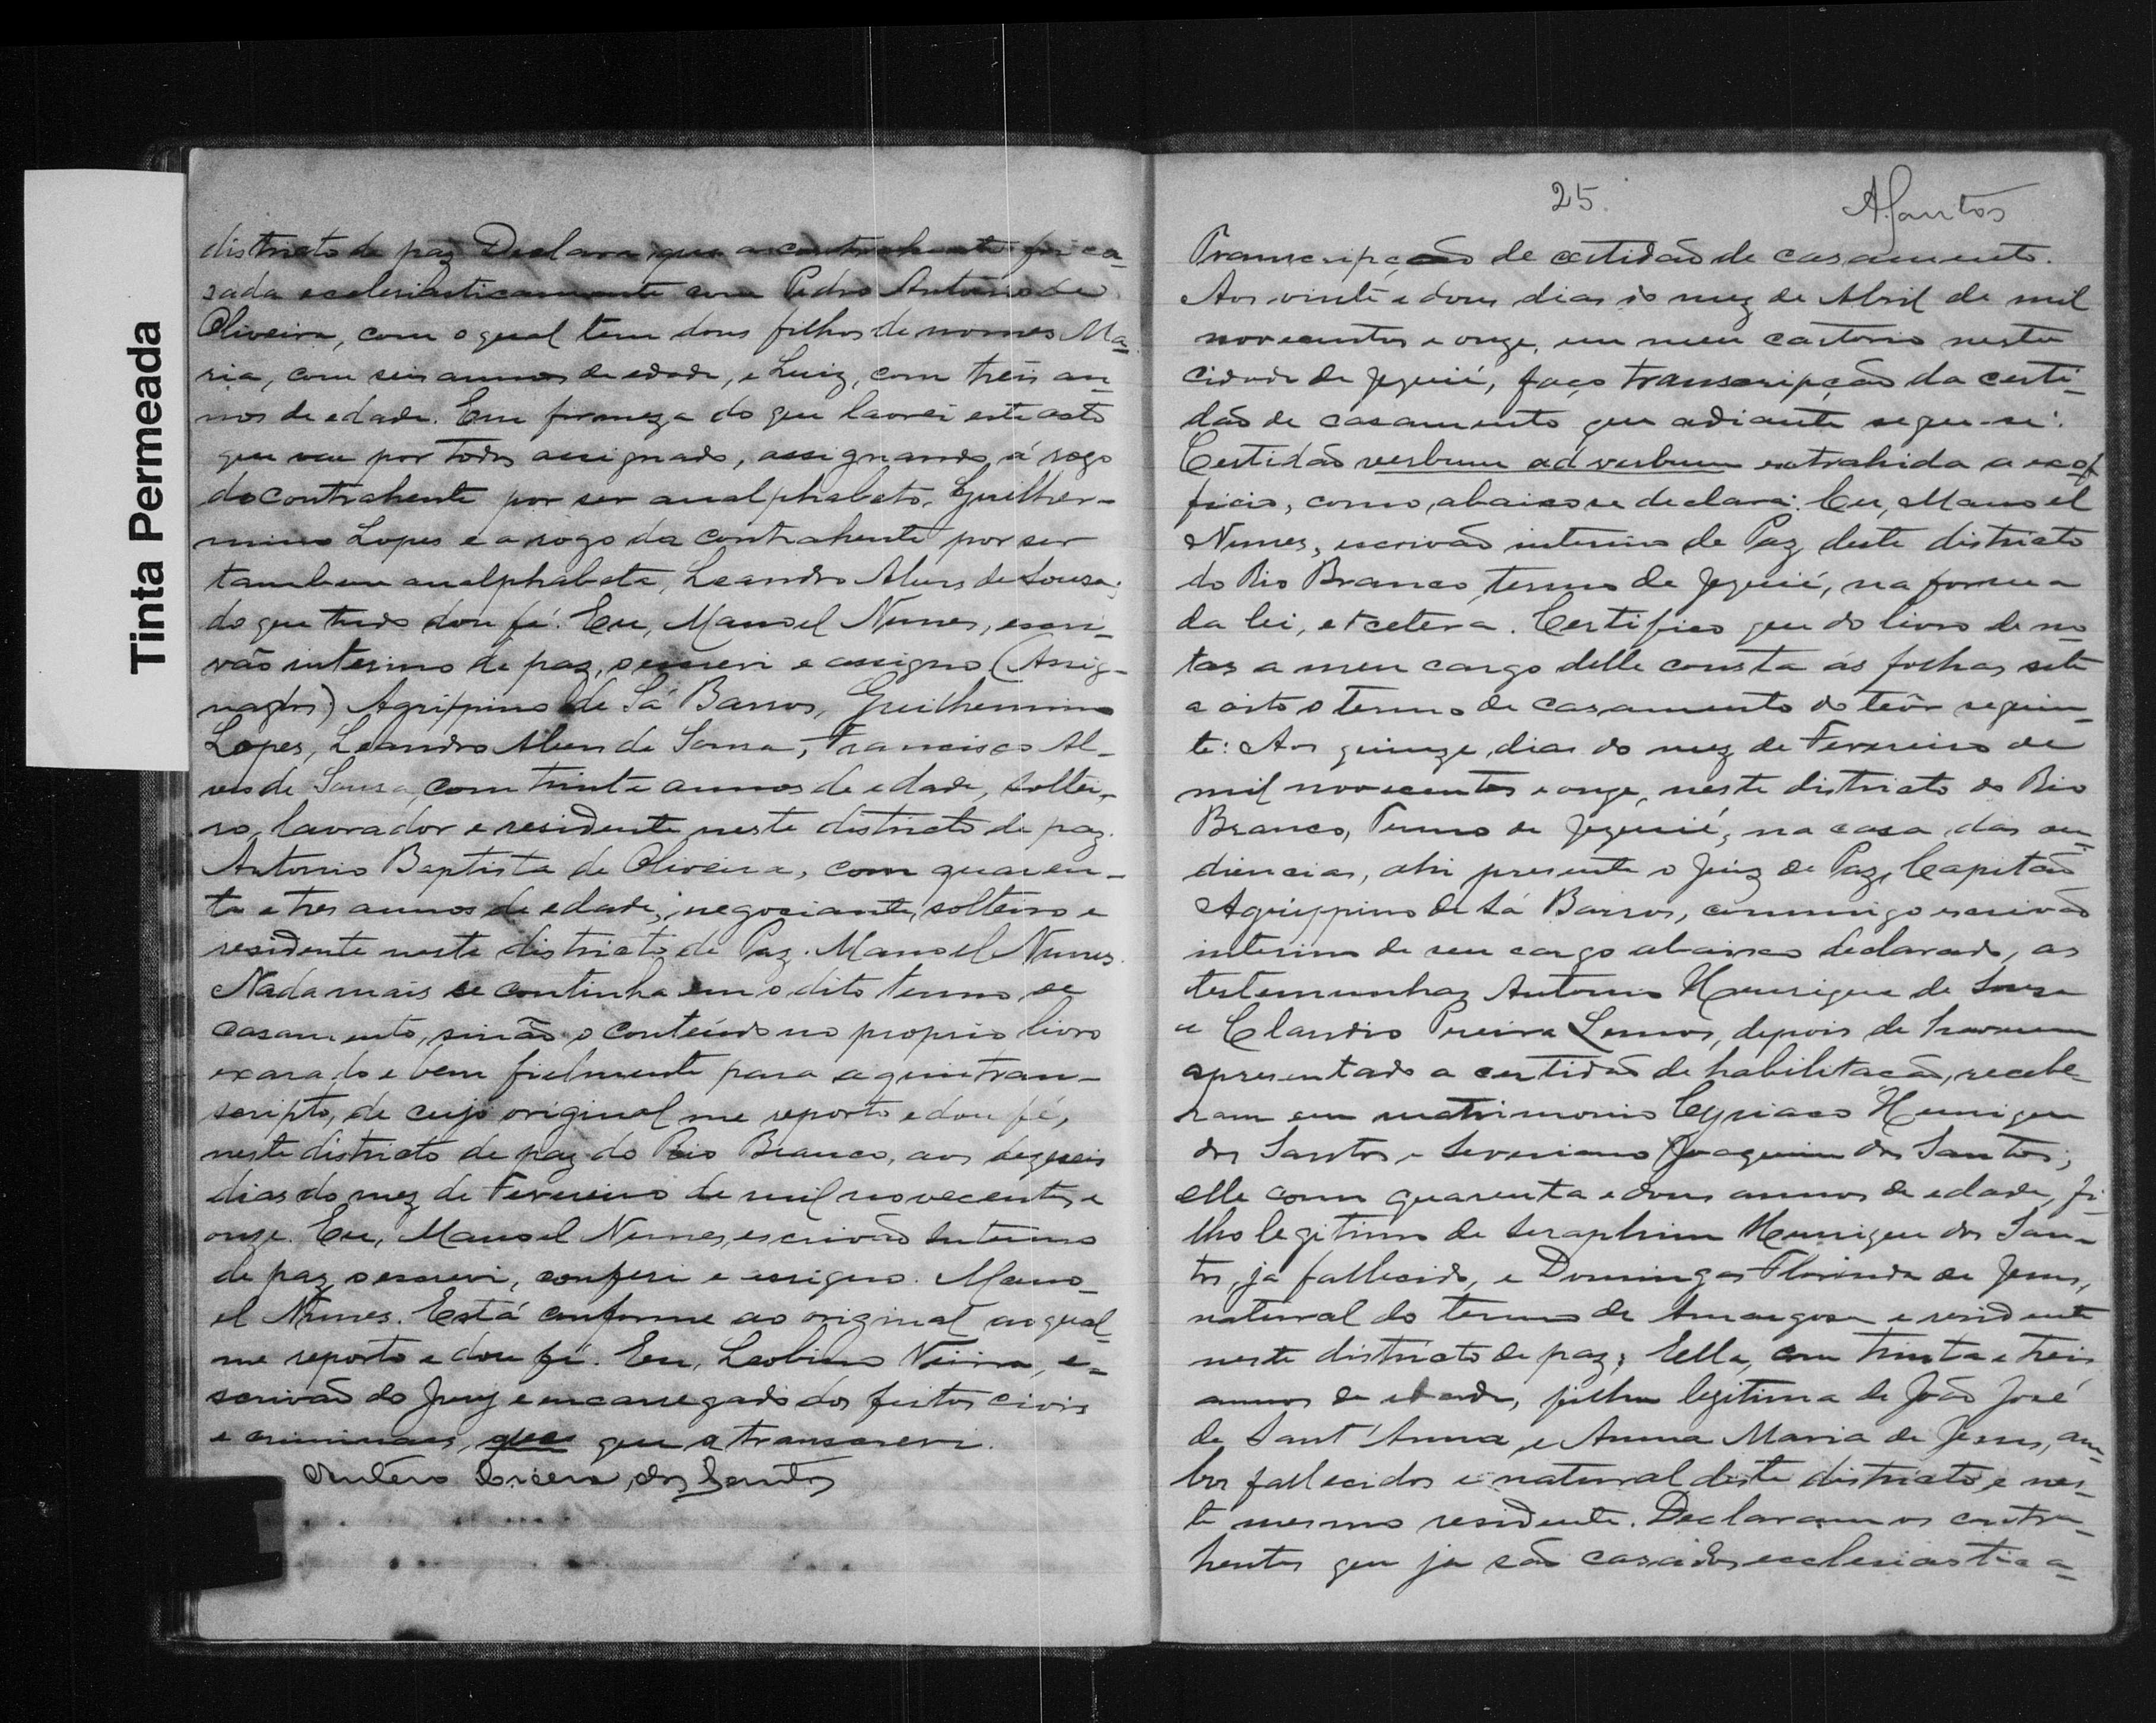 Tinta Permeada
districto de paz Declara que a contrahente foi ca-
sada ecclesiasticamente com Pedro Antonio de
Oliveira, com o qual tem dous filhos de nomes Ma-
ria, com seis annos de edade, e Luiz, com trêis an-
nos de edade. Em firmeza do que lavrei este acto
que vae por todos assignado, assignando á rogo
do contrahente por ser analphabeto, Guilher-
mino Lopes e a rogo da contrahente por ser
tambem analphabeta, Leandro Alves de Sousa;
do que tudo dou fé. Eu, Manoel Nunes, escri-
vão interino de paz, o escrevi e assigno (Assig-
nados) Agrippino de Sá Barros, Guilhermino
Lopes, Leandro Alves de Sousa, Francisco Al-
ves de Sousa, com trinta annos de edade, soltei-
ro, lavrador e residente neste districto de paz.
Antonio Baptista de Oliveira, com quaren-
ta e tres annos de edade, negociante, solteiro e
residente neste districto de Paz. Manoel Nunes.
Nada mais se continha em o dito termo de
casamento, sinão o conteúdo no proprio livro
exarado e bem fielmente para aqui tran-
scripto, de cujo original me reporto e dou fé,
neste districto de paz do Rio Branco, aos dezeseis
dias do mez de Fevereiro de mil novecentos e
onze. Eu, Manoel Nunes, escrivão interino
de paz, o escrevi, conferi e assigno. Mano-
el Nunes. Está conforme ao original ao qual
me reporto e dou fé. Eu, Leobino Vieira, e-
scrivão do Jury e encarregado dos feitos civis
e criminaes, que que a transcrevi.
dos Santos
25.
A. Santos
Transcripção de certidão de casamento.
Aos vinte e dous dias do mez de Abril de mil
novecentos e onze, em meu cartorio nesta
cidade de Jequié, faço transcripção da certi-
dão de casamento que adiante segue-se:
Certidão verbum ad verbum extrahida a ex of-
ficio, como abaixo se declara: Eu, Manoel
Nunes, escrivão interino de Paz deste districto
do Rio Branco, termo de Jequié, na forma
da lei, etcetera. Certifico que do livro de no-
tas a meu cargo delle consta ás folhas sete
a oito o termo de casamento do teôr seguin-
te: Aos quinze dias do mez de Fevereiro de
mil novecentos e onze, neste districto do Rio
Branco, Termo de Jequié, na casa das au-
diencias, ahi presente o Juiz de Paz, Capitão
Agrippino de Sá Barros, commigo escrivão
interino de seu cargo abaixo declarado, as
testemunhas Antonio Henrique de Sousa
e Claudio Pereira Lemos, depois de haverem
apresentado a certidão de habilitação, recebe-
ram em matrimonio Cyriaco Henrique
dos Santos e Severiana Joaquina dos Santos;
elle com quarenta e dous annos de edade, fi-
lho legitimo de Seraphim Henrique dos San-
tos, já fallecido, e Domingas Florinda de Jesus,
natural do termo de Amargosa e residente
neste districto de paz; Ella, com trinta e treis
annos de edade, filha legitima de João José
de Sant'Anna, e Anna Maria de Jesus, am-
bos fallecidos e natural deste districto e nes-
te mesmo residente. Declararam os contra-
hentes que já são casados ecclesiastica-